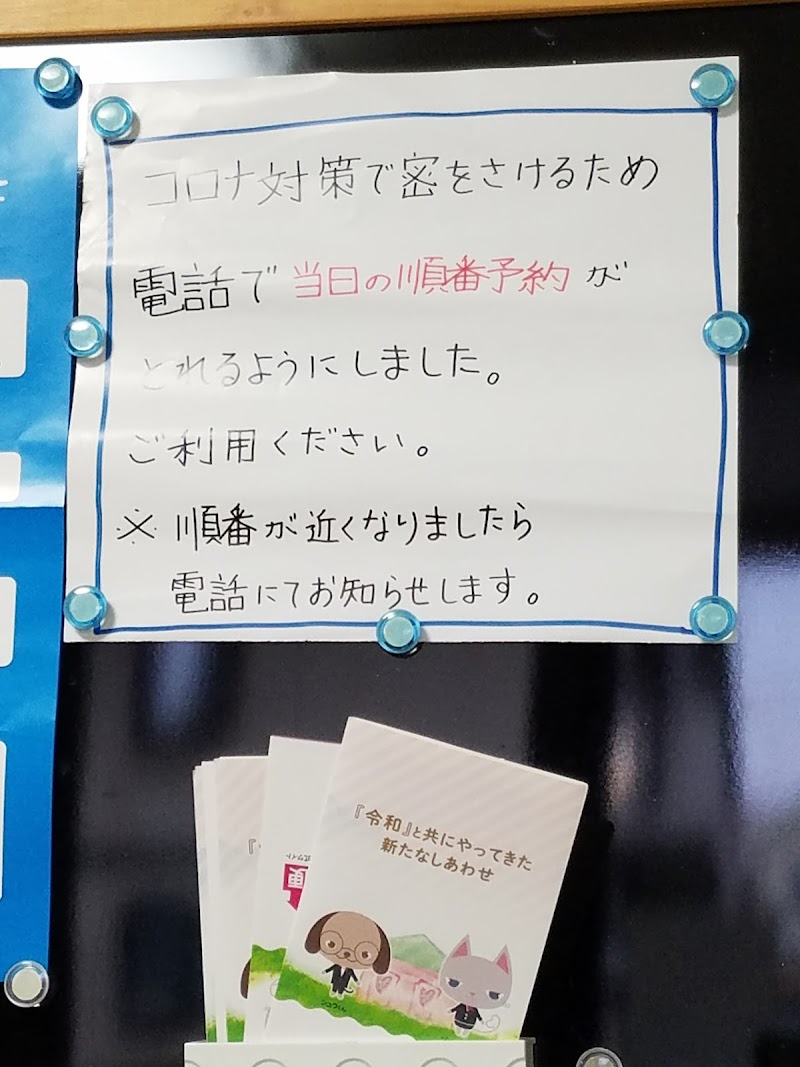 コロナ対策で密をさけるため
電話で当日の順番予約が
とれるようにしました。
ご利用ください。
※順番が近くなりましたら
電話にてお知らせします。
『令和』と共にやってきた
新たなしあわせ